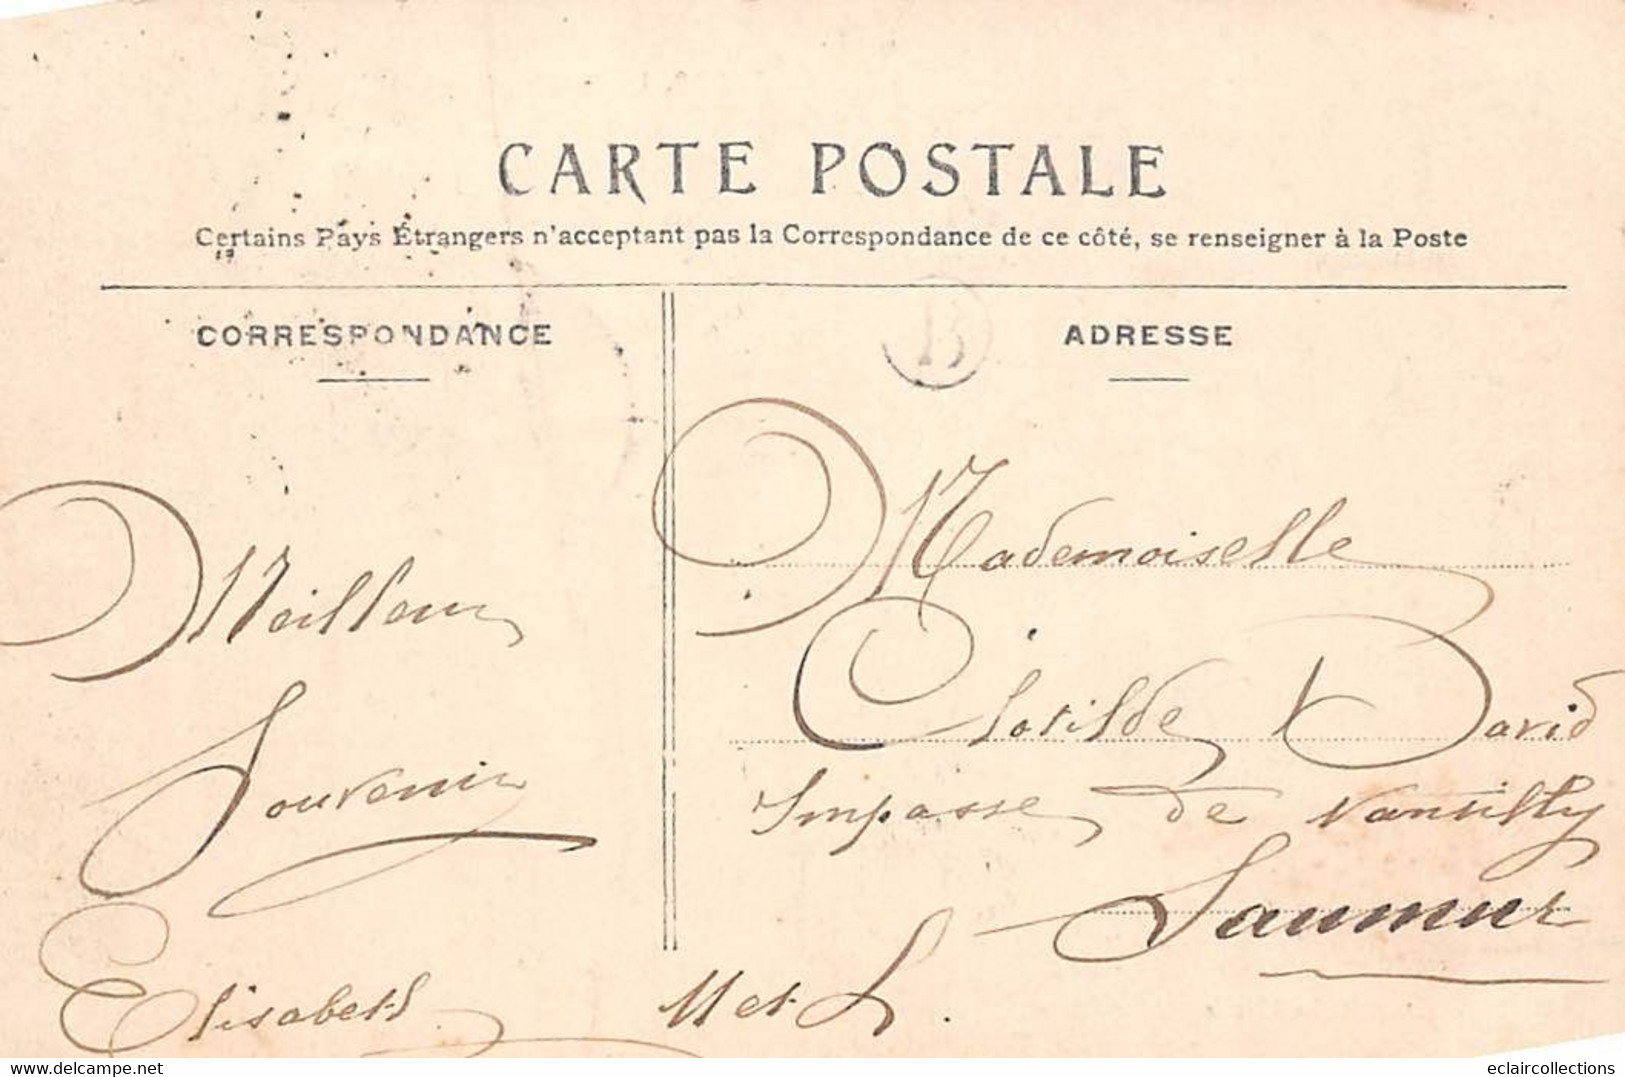 CARTE POSTALE
Certains Pays Étrangers n'acceptant pas la Correspondance de ce côté, se renseigner à la Poste
CORRESPONDANCE
Meilleur
Souvenir
Elisabeth
ADRESSE
Mademoiselle
Clotilde David
Impasse de Nantilly
Saumur
M et L.
www.delcampe.net
eclaircollections